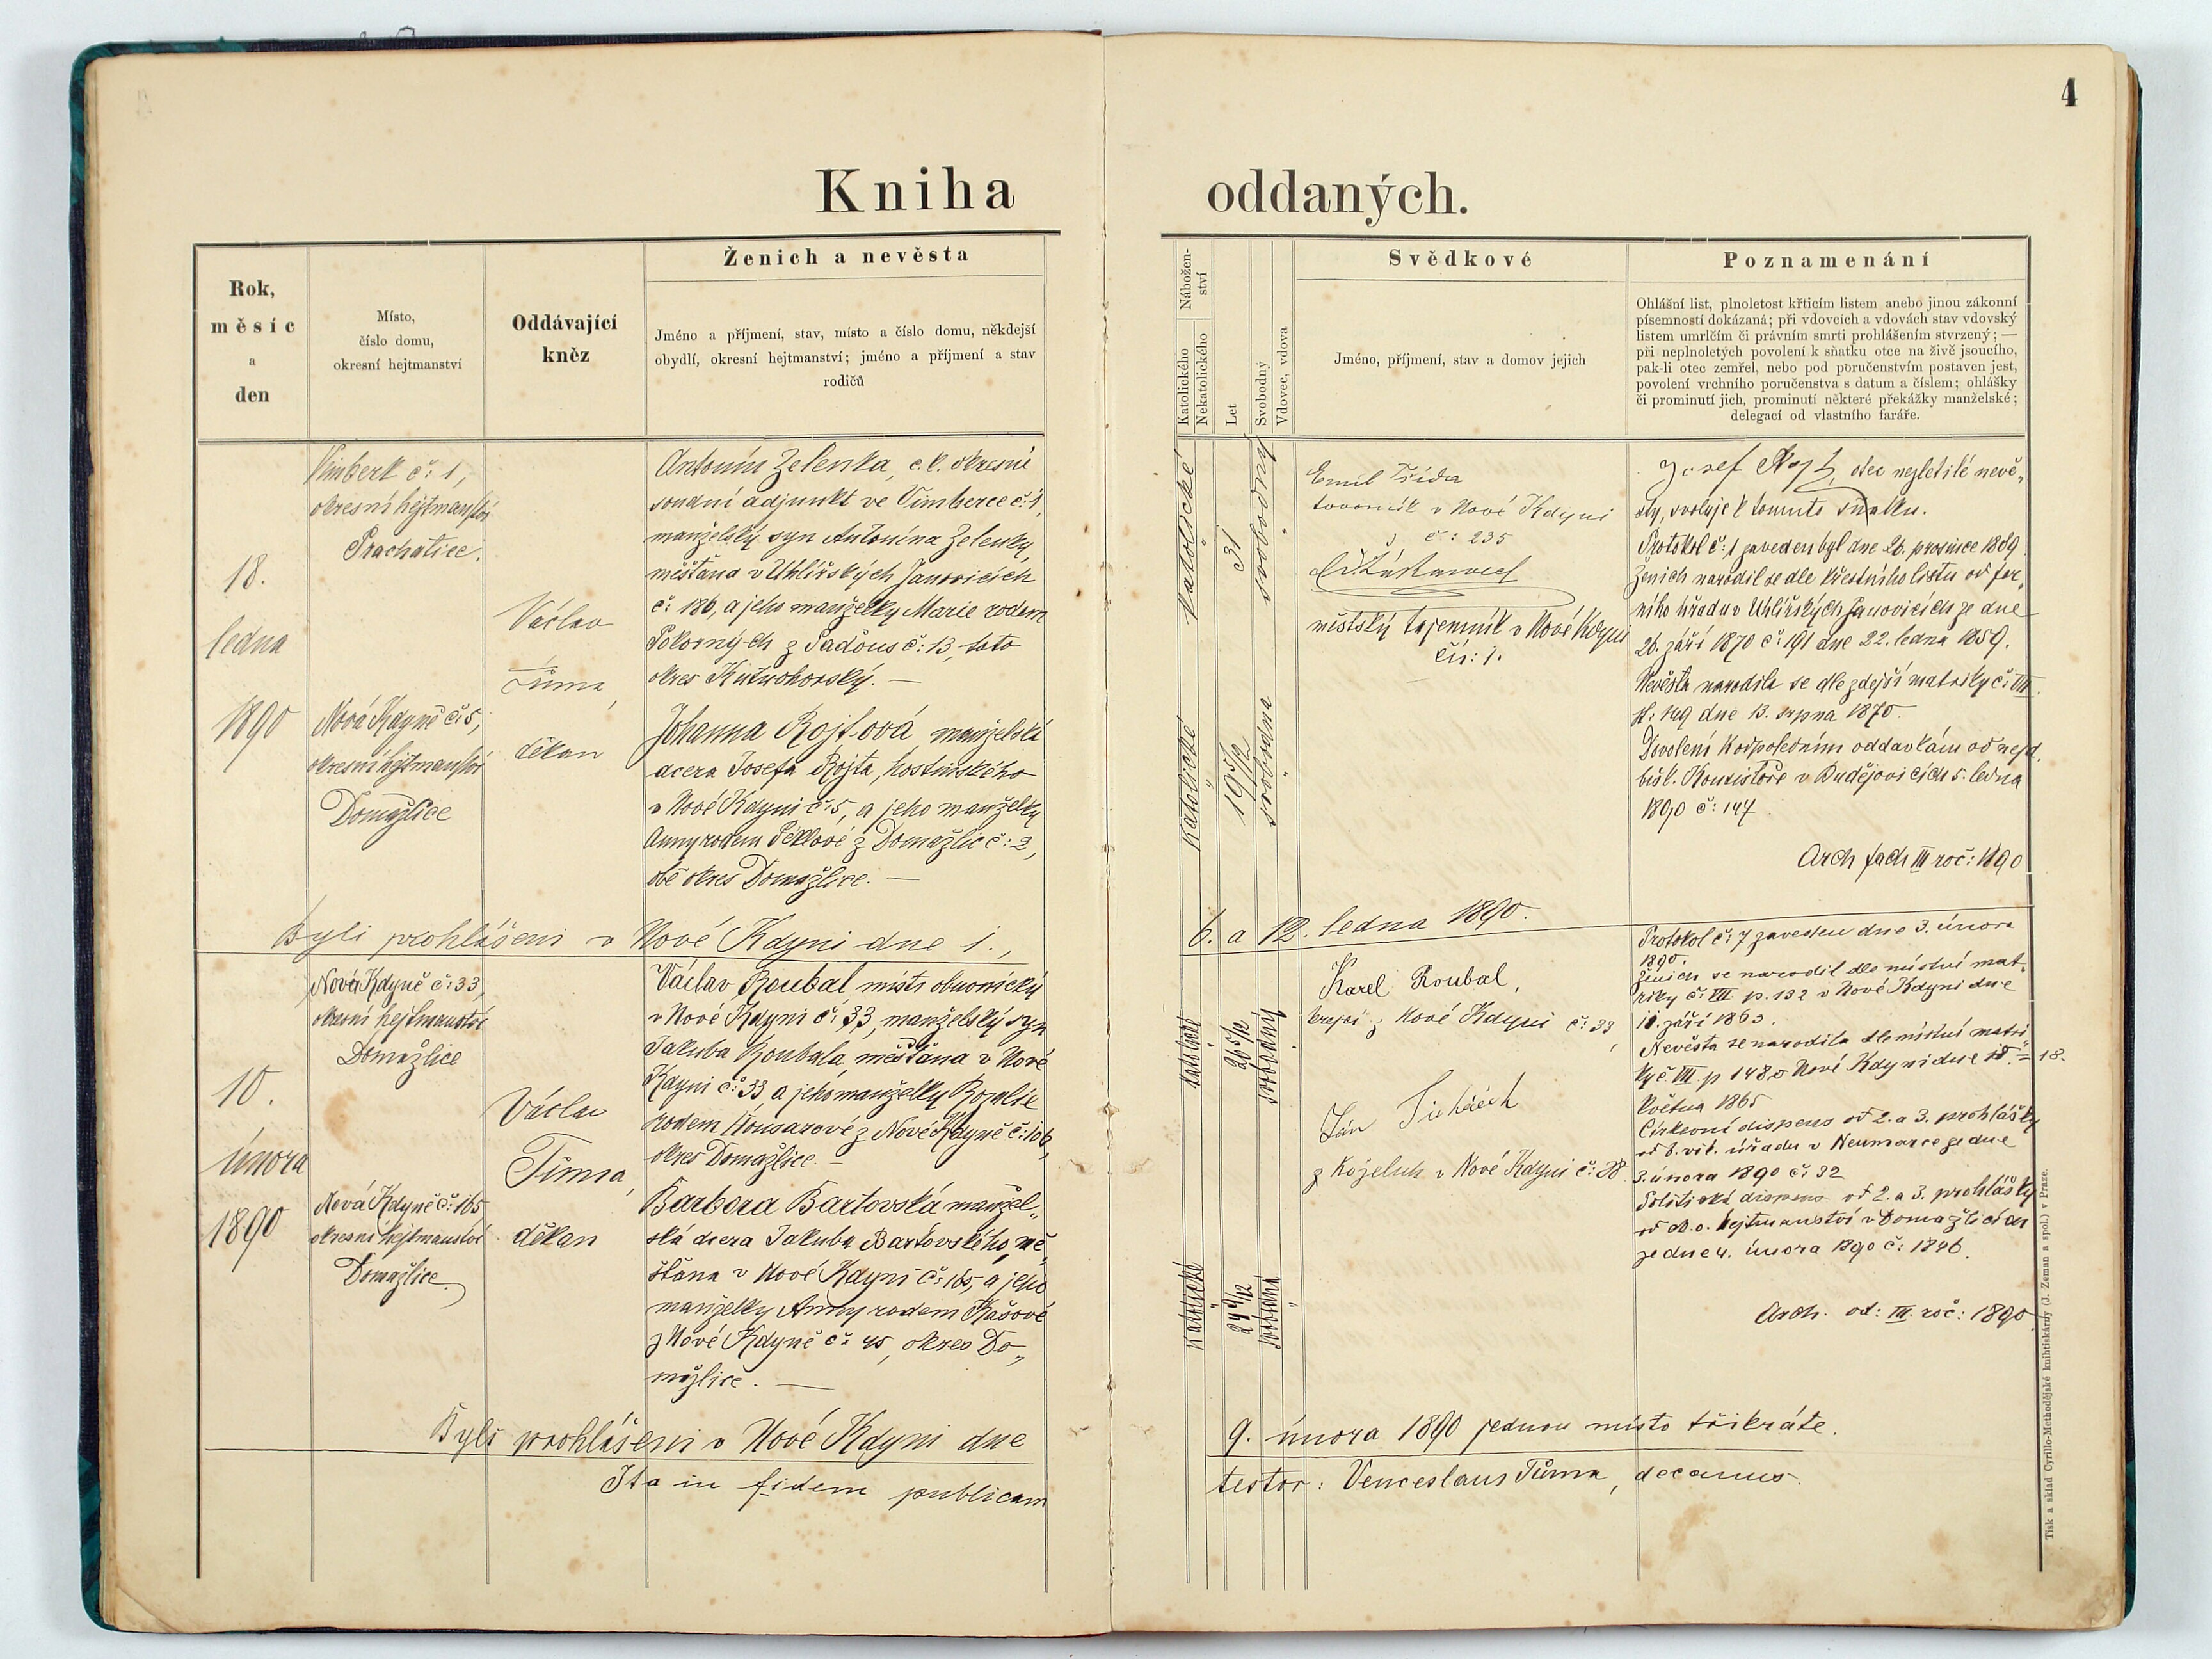 4
Kniha oddaných.
Rok,
měsíc
a
den
Místo,
číslo domu,
okresní hejtmanství
Oddávající
kněz
Ženich a nevěsta
Jméno a příjmení, stav, místo a číslo domu, někdejší
obydlí, okresní hejtmanství; jméno a příjmení a stav
rodičů
Nábožen-
ství
Katolického
Nekatolického
Let
Svobodný
Vdovec, vdova
Svědkové
Jméno, příjmení, stav a domov jejich
Poznamenání
Ohlášní list, plnoletost křticím listem anebo jinou zákonní
písemností dokázaná; při vdovcích a vdovách stav vdovský
listem umrlčím či právním smrti prohlášením stvrzený; —
při neplnoletých povolení k sňatku otce na živě jsoucího,
pak-li otec zemřel, nebo pod poručenstvím postaven jest,
povolení vrchního poručenstva s datum a číslem; ohlášky
či prominutí jich, prominutí některé překážky manželské;
delegací od vlastního faráře.
18.
ledna
1890
Vimberk č: 1,
okresní hejtmanství
Prachatice.
Nová Kdyně č: 5,
okresní hejtmanství
Domažlice
Václav
Tůma,
děkan
Antonín Zelenka, c.k. okresní
soudní adjunkt ve Vimberce č: 1,
manželský syn Antonína Zelenky,
měšťana v Uhlířských Janovicích
č: 186, a jeho manželky Marie rodem
Pokorných z Paďous č: 13, toto
okres Kutnohorský. —
Johanna Rojtová, manželská
dcera Josefa Rojta, hostinského
v Nové Kdyni č: 5, a jeho manželky
Anny rodem Peklové z Domažlic č: 2,
obé okres Domažlice. —
katolické
31
svobodný
katolické
19 5/12
svobodna
Emil
továrník v Nové Kdyni
č: 235
městský tajemník v Nové Kdyni
čís: 1.
Josef Rojt, otec nezletilé nevě„
sty, svoluje k tomuto sňatku.
Protokol č: 1 zaveden byl dne 26. prosince 1889
Ženich narodil se dle křestního listu od far„
ního úřadu v Uhlířských Janovicích ze dne
26. září 1870 č: 191 dne 22. ledna 1859.
Nevěsta narodila se dle zdejší matriky č: VIII.
st: 149 dne 13. srpna 1870.
Dovolení k odpoledním oddavkám od nejd.
bisk. Konzistoře v Budějovicích 5. ledna
1890 č: 147.
Arch fach III roč: 1890
Byli prohlášeni v Nové Kdyni dne 1., 6. a 12. ledna 1890.
10.
února
1890
Nová Kdyně č: 33,
okresní hejtmanství
Domažlice
Nová Kdyně č: 165
okresní hejtmanství
Domažlice.
Václav
Tůma,
děkan
Václav Roubal mistr obuvnický
v Nové Kdyni č: 33, manželský syn
Jakuba Roubala, měšťana v Nové
Kdyni č: 33 a jeho manželky Rozalie
rodem Housarové z Nové Kdyně č: 106,
okres Domažlice. —
Barbora Bartovská manžel„
ská dcera Jakuba Bartovského, mě„
šťana v Nové Kdyni č: 165, a jeho
manželky Anny rodem Kašové
z Nové Kdyně č: 45, okres Do„
mažlice. —
katolické
26 5/12
svobodný
katolické
24 9/12
svobodná
Karel Roubal,
krejčí z Nové Kdyni č: 33,
Jan
z Koželuh v Nové Kdyni č: 28
Protokol č: 7 zaveden dne 3. února
1890.
Ženich se narodil dle místní mat„
riky č: VII. p. 132 v Nové Kdyni dne
11. září 1863.
Nevěsta se narodila dle místní matri„
ky č. VIII. p 148 v Nové Kdyni dne 18. = 18.
května 1865
Církevní dispens od 2. a 3. prohlášky
od b. vik. úřadu v Neumarce ze dne
3. února 1890 č: 32
Politická dispens od 2. a 3. prohlášky
od hejtmanství v Domažlicích
ze dne 4. února 1890 č: 1896.
Arch. od: III. roč: 1890
Byli prohlášeni v Nové Kdyni dne 9. února 1890 jednou místo třikráte.
Ita in fidem publicam testor: Venceslaus Tůma, decanus.
Tisk a sklad Cyrillo-Methodějské knihtiskárny (J. Zeman a spol.) v Praze.